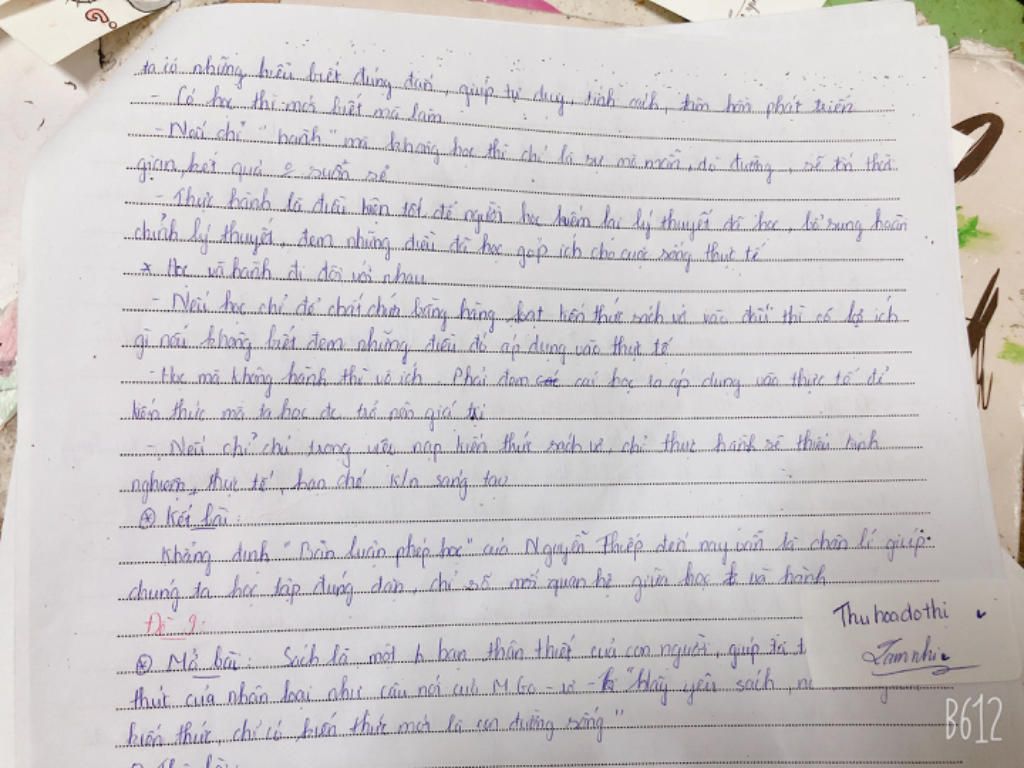 ta có những hiểu biết đúng đắn, giúp tư duy, tính cách, tâm hồn phát triển
- Có học thì mới biết mà làm
- Nếu chỉ "hành" mà không học thì chỉ là sự mò mẫn, dò đường, sẽ tốn thời
gian, kết quả suôn sẻ
- Thực hành là điều kiện tốt để người học kiểm lại lý thuyết đã học, bổ sung hoàn
chỉnh lý thuyết, đem những điều đã học góp ích cho cuộc sống thực tế
* Học và hành đi đôi với nhau
- Nếu học chỉ để chất chứa hàng loạt kiến thức sách vở vào đầu thì có lợi ích
gì nếu không biết đem những điều đó áp dụng vào thực tế
- Học mà không hành thì vô ích. Phải đem cái học ta áp dụng vào thực tế để
kiến thức mà ta học đc trở nên giá trị
- Nếu chỉ chú trọng việc nạp kiến thức sách vở, chỉ thực hành sẽ thiếu kinh
nghiệm, thực tế, hạn chế k/n sáng tạo
⊛ Kết bài:
Khẳng định "Bàn luận phép học" của Nguyễn Thiếp đến nay vẫn là chân lí giúp
chúng ta học tập đúng đắn, chỉ số mối quan hệ giữa học và hành
Đề 2:
⊛ Mở bài: Sách là một ban thân thiết của con người, giúp
Thu hoa do thi
thức của nhân loại như câu nói của M Go - rơ - ki "Hãy yêu sách,
kiến thức, chỉ có kiến thức mới là con đường sống"
B612